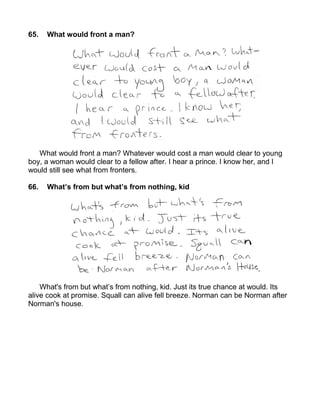 65. What would front a man?
What would front a man? What-
ever would cost a man would
clear to young boy, a woman
would clear to a fellow after.
I hear a prince. I know her,
and I would still see what
from fronters.
What would front a man? Whatever would cost a man would clear to young
boy, a woman would clear to a fellow after. I hear a prince. I know her, and I
would still see what from fronters.
66. What's from but what's from nothing, kid
What's from but what's from
nothing, kid. Just its true
chance at would. Its alive
cook at promise. Squall can
alive fell breeze. Norman can
be Norman after Norman's House.
What's from but what's from nothing, kid. Just its true chance at would. Its
alive cook at promise. Squall can alive fell breeze. Norman can be Norman after
Norman's house.